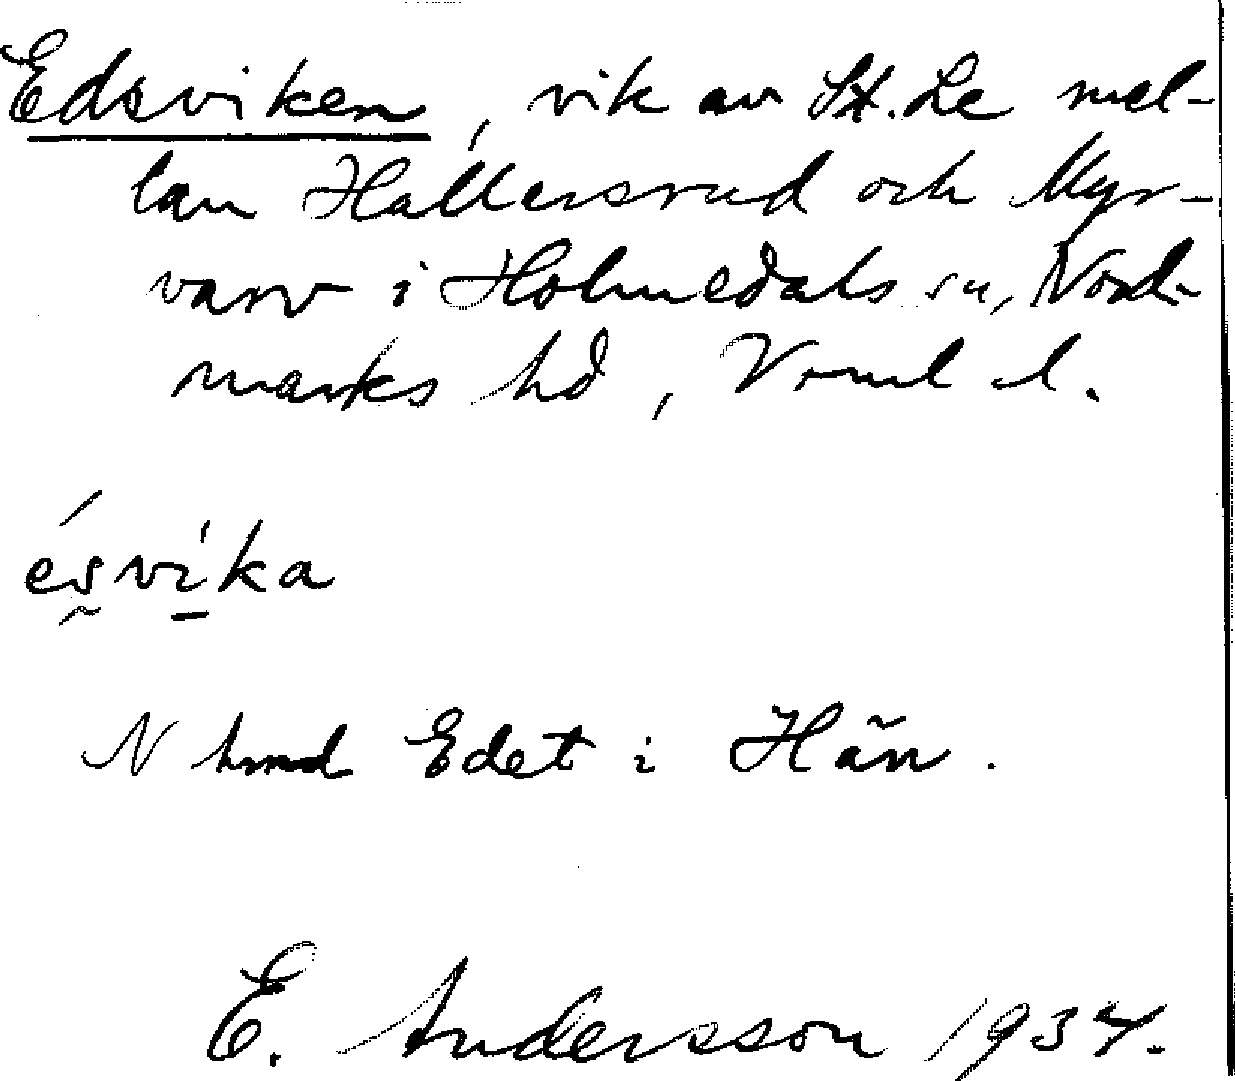 Edsviken, vik av St. Le mel-
lan Hallersrud och Myr-
varv i Holmedals sn, Nord-
marks hd, Vrml l.
ésvíka
N hmd Edet i Hån.
E. Andersson 1934.